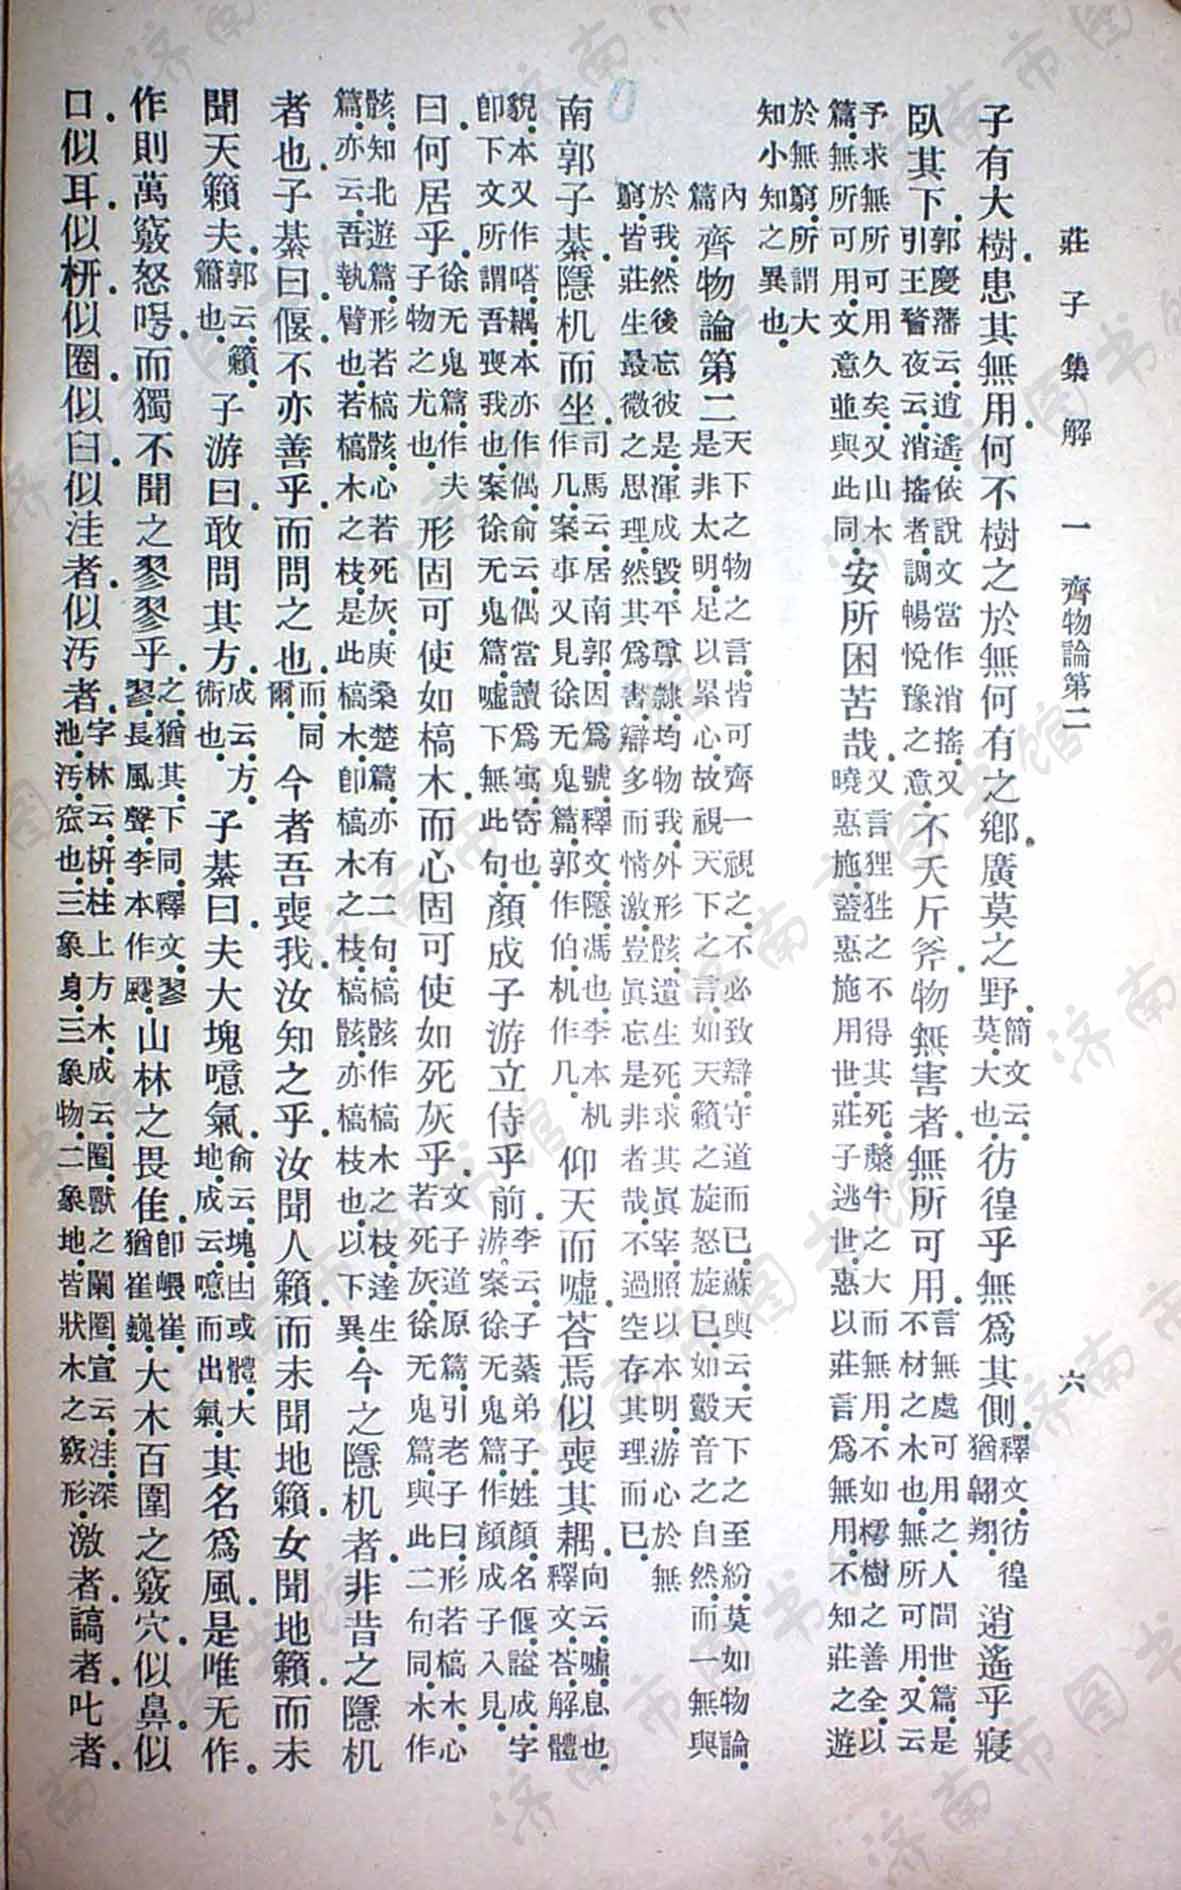 莊子集解 一 齊物論第二 六
子有大樹。患其無用。何不樹之於無何有之鄉。廣莫之野。簡文云。莫。大也。彷徨乎無爲其側。釋文。彷徨。猶翺翔。逍遙乎寢
臥其下。郭慶藩云。逍遙。依說文當作消搖。又引王瞀夜云。消搖者。調暢悅豫之意。不夭斤斧。物無害者。無所可用。言無處可用之。人間世篇。是不材之木也。無所可用。又云
予求無所可用久矣。又山木篇。無所可用。文意並與此同。安所困苦哉。又言狸狌之不得其死。斄牛之大而無用。不如樗樹之善全。以曉惠施。蓋惠施用世。莊子逃世。惠以莊言爲無用。不知莊之遊
於無窮。所謂大知小知之異也。
內篇齊物論第二 天下之物之言。皆可齊一視之。不必致辯。守道而已。蘇輿云。天下之至紛。莫如物論。是非太明。足以累心。故視天下之言。如天籟之旋怒旋已。如鷇音之自然。而一無與
於我。然後忘彼是。渾成毀。平尊隸。均物我。外形骸。遺生死。求其眞宰。照以本明。游心於無窮。皆莊生最微之思理。然其爲書。辯多而情激。豈眞忘是非者哉。不過空存其理而已。
南郭子綦。隱机而坐。司馬云。居南郭。因爲號。釋文。隱。馮也。李本机作几。案事又見徐无鬼篇。郭作伯。机作几。仰天而噓。荅焉似喪其耦。向云。噓。息也。釋文。荅。解體
貌。本又作嗒。耦。本亦作偶。俞云。偶當讀爲寓。寄也。卽下文所謂吾喪我也。案徐无鬼篇。噓下無此句。顏成子游立侍乎前。李云。子綦弟子。姓顏。名偃。謚成。字游。案徐无鬼篇。作顏成子入見。
曰。何居乎。徐无鬼篇。作夫子物之尤也。形固可使如槁木。而心固可使如死灰乎。文子道原篇。引老子曰。形若槁木。心若死灰。徐无鬼篇。與此二句同。木作
骸。知北遊篇。形若槁骸。心若死灰。庚桑楚篇。亦有二句。槁骸作槁木之枝。達生篇。亦云。吾執臂也。若槁木之枝。是此槁木。卽槁木之枝。槁骸。亦槁枝也。以下異。今之隱机者。非昔之隱机
者也。子綦曰。偃。不亦善乎。而問之也。而。同爾。今者吾喪我。汝知之乎。汝聞人籟。而未聞地籟。女聞地籟。而未
聞天籟夫。郭云。籟。簫也。子游曰。敢問其方。成云。方。術也。子綦曰。夫大塊噫氣。俞云。塊。凷或體。大地。成云。噫而出氣。其名爲風。是唯无作。
作則萬竅怒呺。而獨不聞之翏翏乎。之。猶其。下同。釋文。翏翏。長風聲。李本作飂。山林之畏隹。卽㟪崔。猶崔巍。大木百圍之竅穴。似鼻。似
口。似耳。似枅。似圈。似臼。似洼者。似汚者。字林云。枅。柱上方木。成云。圈。獸之闌圈。宣云。洼。深池。汚。窊也。三象身。三象物。二象地。皆狀木之竅形。激者。謞者。叱者。